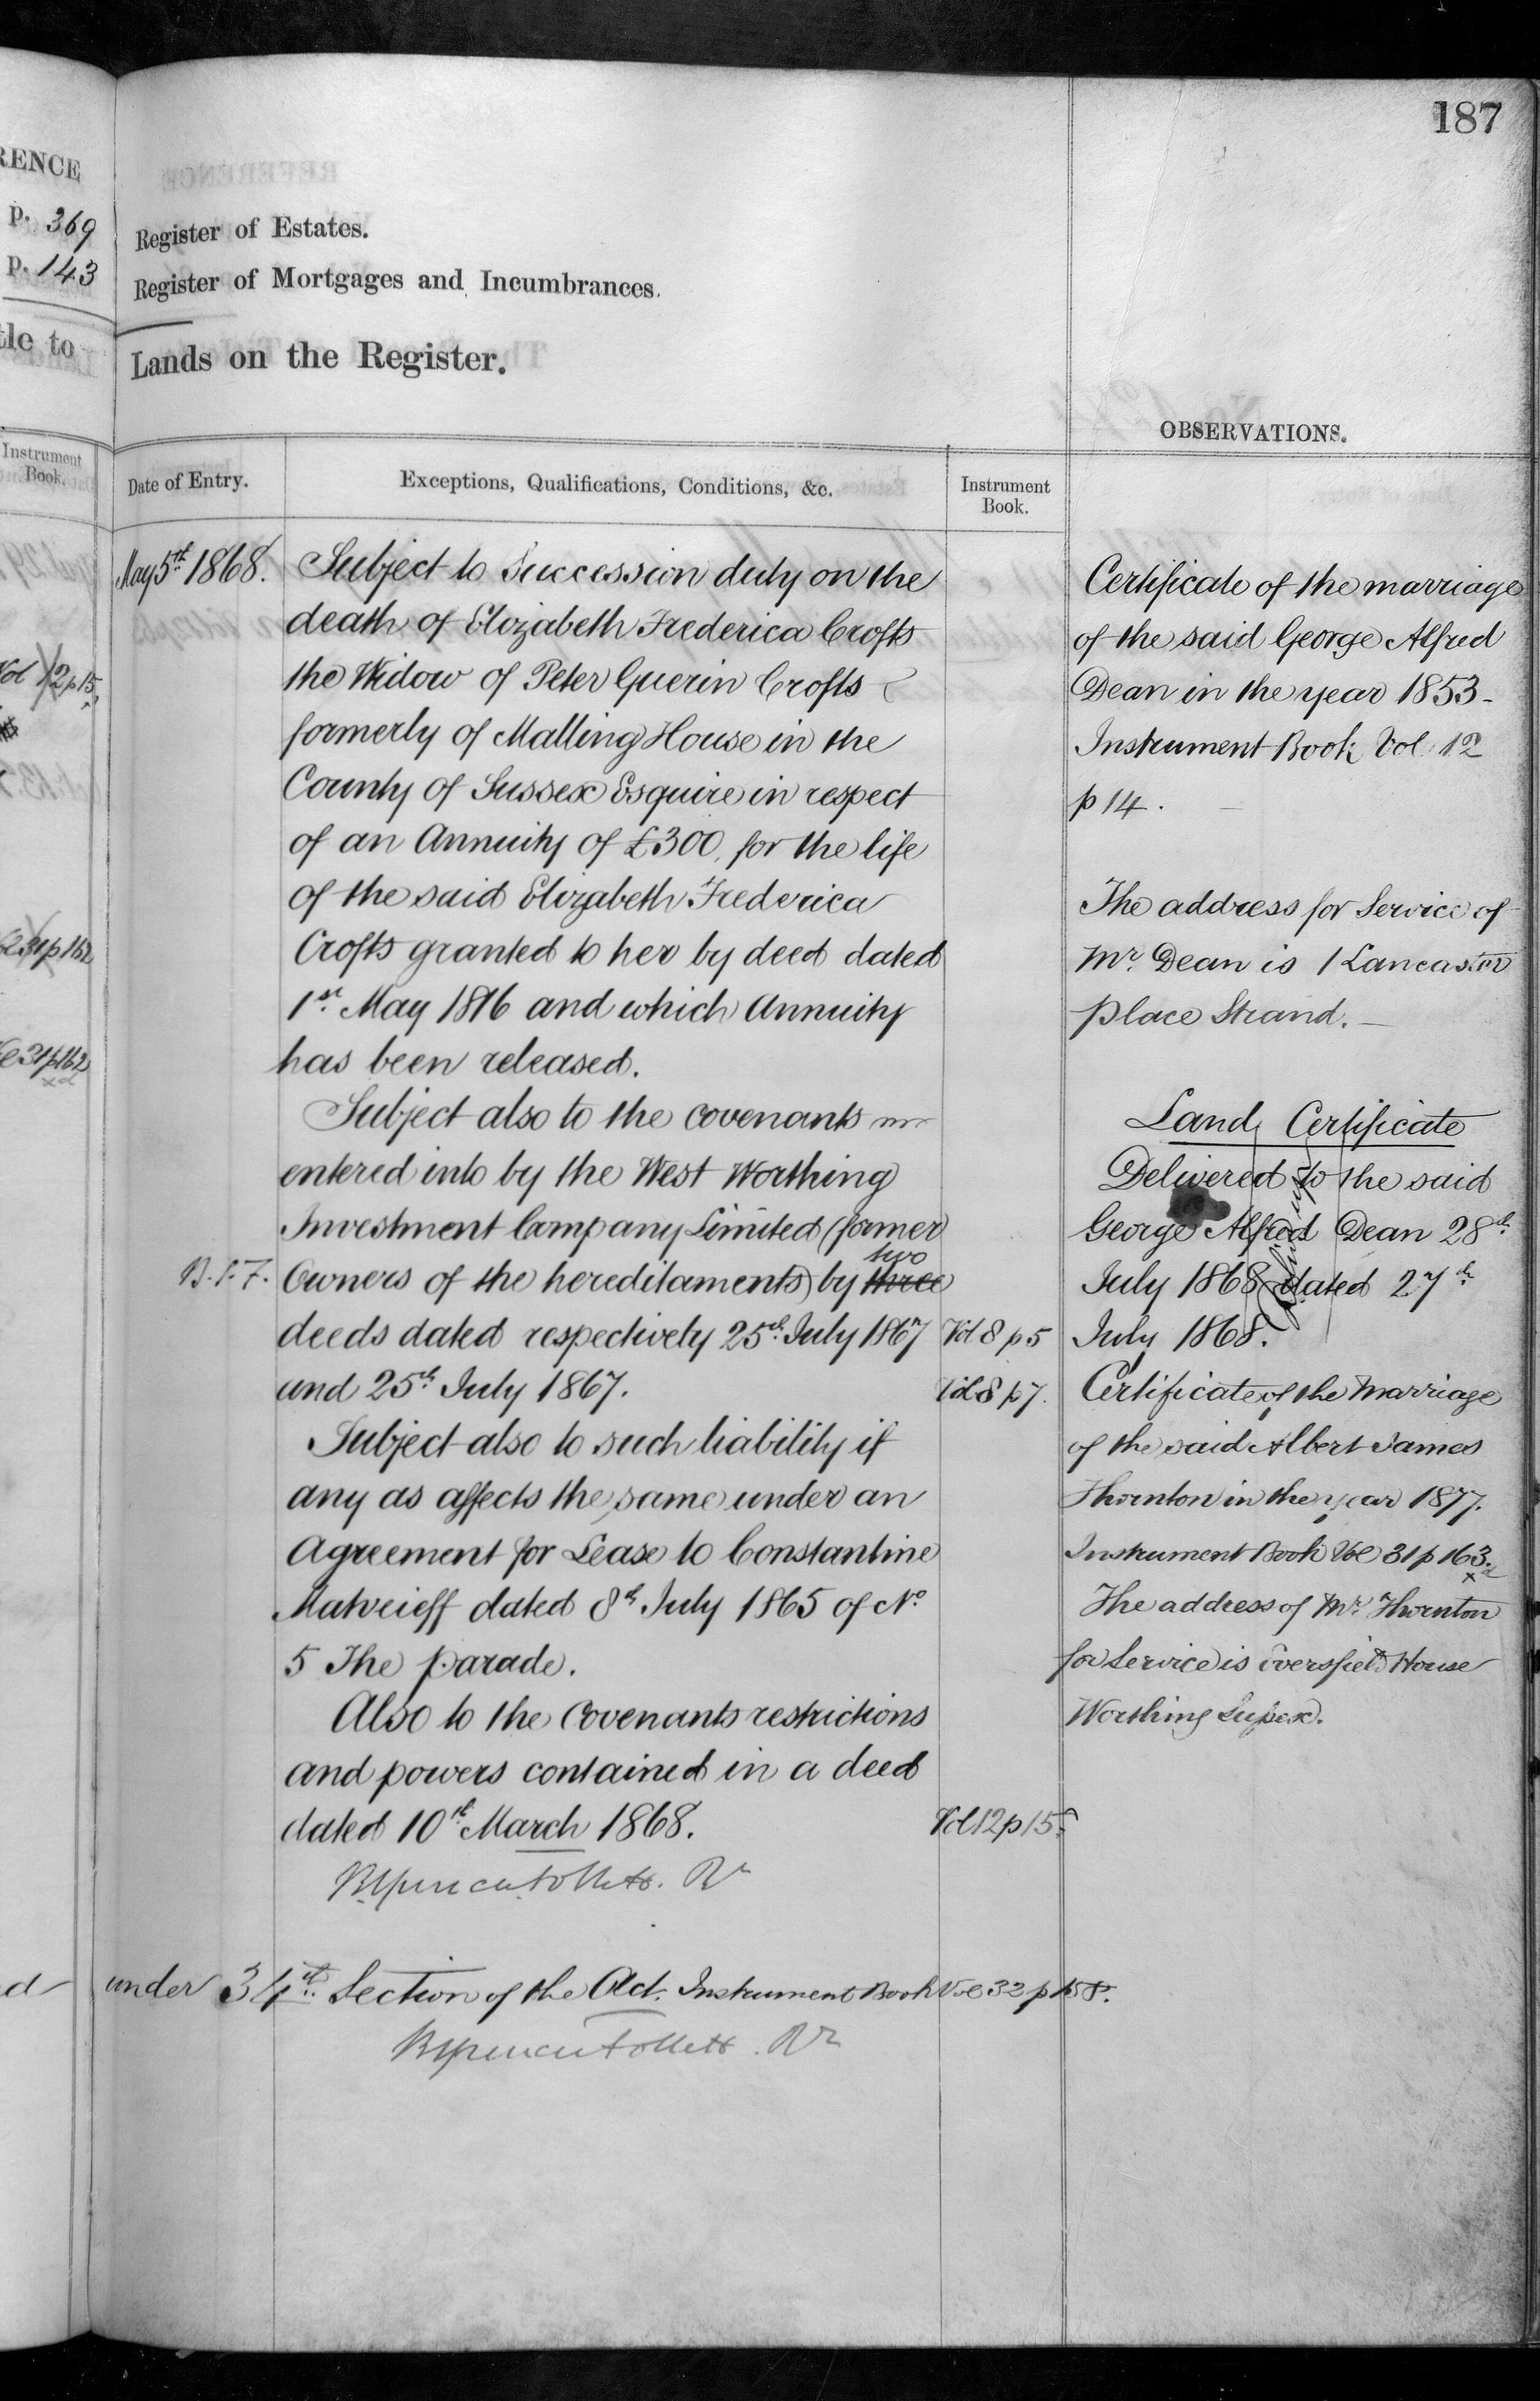 187
RENCE
p. 369
p. 143
tle to
Instrument
Book.
Vol 12 p 15
31 p 162
31 p 162
Register of Estates.
Register of Mortgages and Incumbrances.
Lands on the Register.
OBSERVATIONS.
Date of Entry.
Exceptions, Qualifications, Conditions, &c.
Instrument
Book.
May 5th 1868.
Subject to Succession duty on the
death of Elizabeth Frederica Crofts
the Widow of Peter Guerin Crofts
formerly of Malling House in the
County of Sussex Esquire in respect
of an Annuity of £300, for the life
of the said Elizabeth Frederica
Crofts granted to her by deed dated
1st May 1816 and which Annuity
has been released.
Subject also to the covenants
entered into by the West Worthing
Investment Company Limited (former
two
B.P.F. Owners of the hereditaments) by three
deeds dated respectively 25th July 1867 Vol 8 p 5
and 25th July 1867. Vol 8 p 7.
Subject also to such liability if
any as affects the same under an
Agreement for Lease to Constantine
Matveieff dated 8th July 1865 of No
5 The parade.
Also to the Covenants restrictions
and powers contained in a deed
dated 10th March 1868. Vol 12 p 15.
Rr
under 34th Section of the Act. Instrument Book Vol 32 p 158.
Rr
Certificate of the marriage
of the said George Alfred
Dean in the year 1853-
Instrument Book Vol. 12
p 14.
The address for Service of
Mr. Dean is 1 Lancaster
place Strand.
Land Certificate
Delivered to the said
George Alfred Dean 28th
July 1868 dated 27th
July 1868.
Certificate of the Marriage
of the said Albert James
Thornton in the year 1877.
Instrument Book Vol 31 p 163.
The address of Mr. Thornton
for Service is Eversfield House
Worthing Sussex.